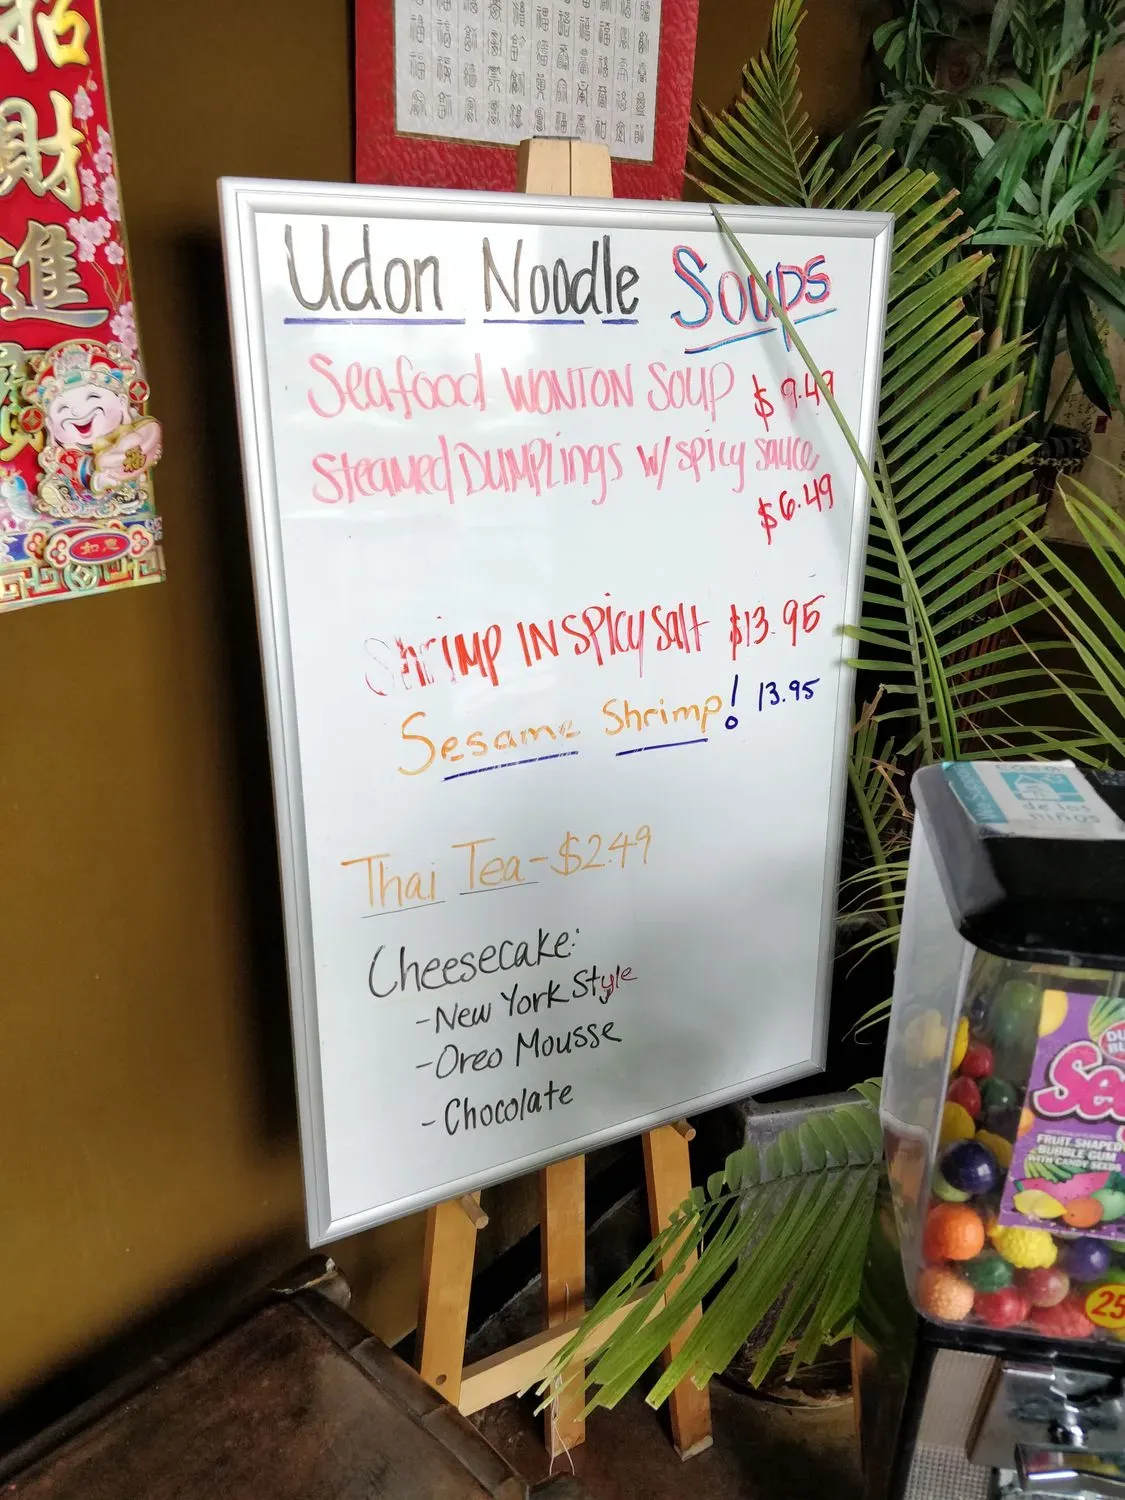 招
財
進
Udon Noodle Soups
Seafood WONTON SOUP $9.49
Steamed DUMPLings w/ spicy sauce
$6.49
Shrimp IN Spicy Salt $13.95
Sesame Shrimp! 13.95
Thai Tea - $2.49
Cheesecake:
- New York Style
- Oreo Mousse
- Chocolate
de los
niños
FRUIT SHAPED
BUBBLE GUM
WITH CANDY SEEDS
25